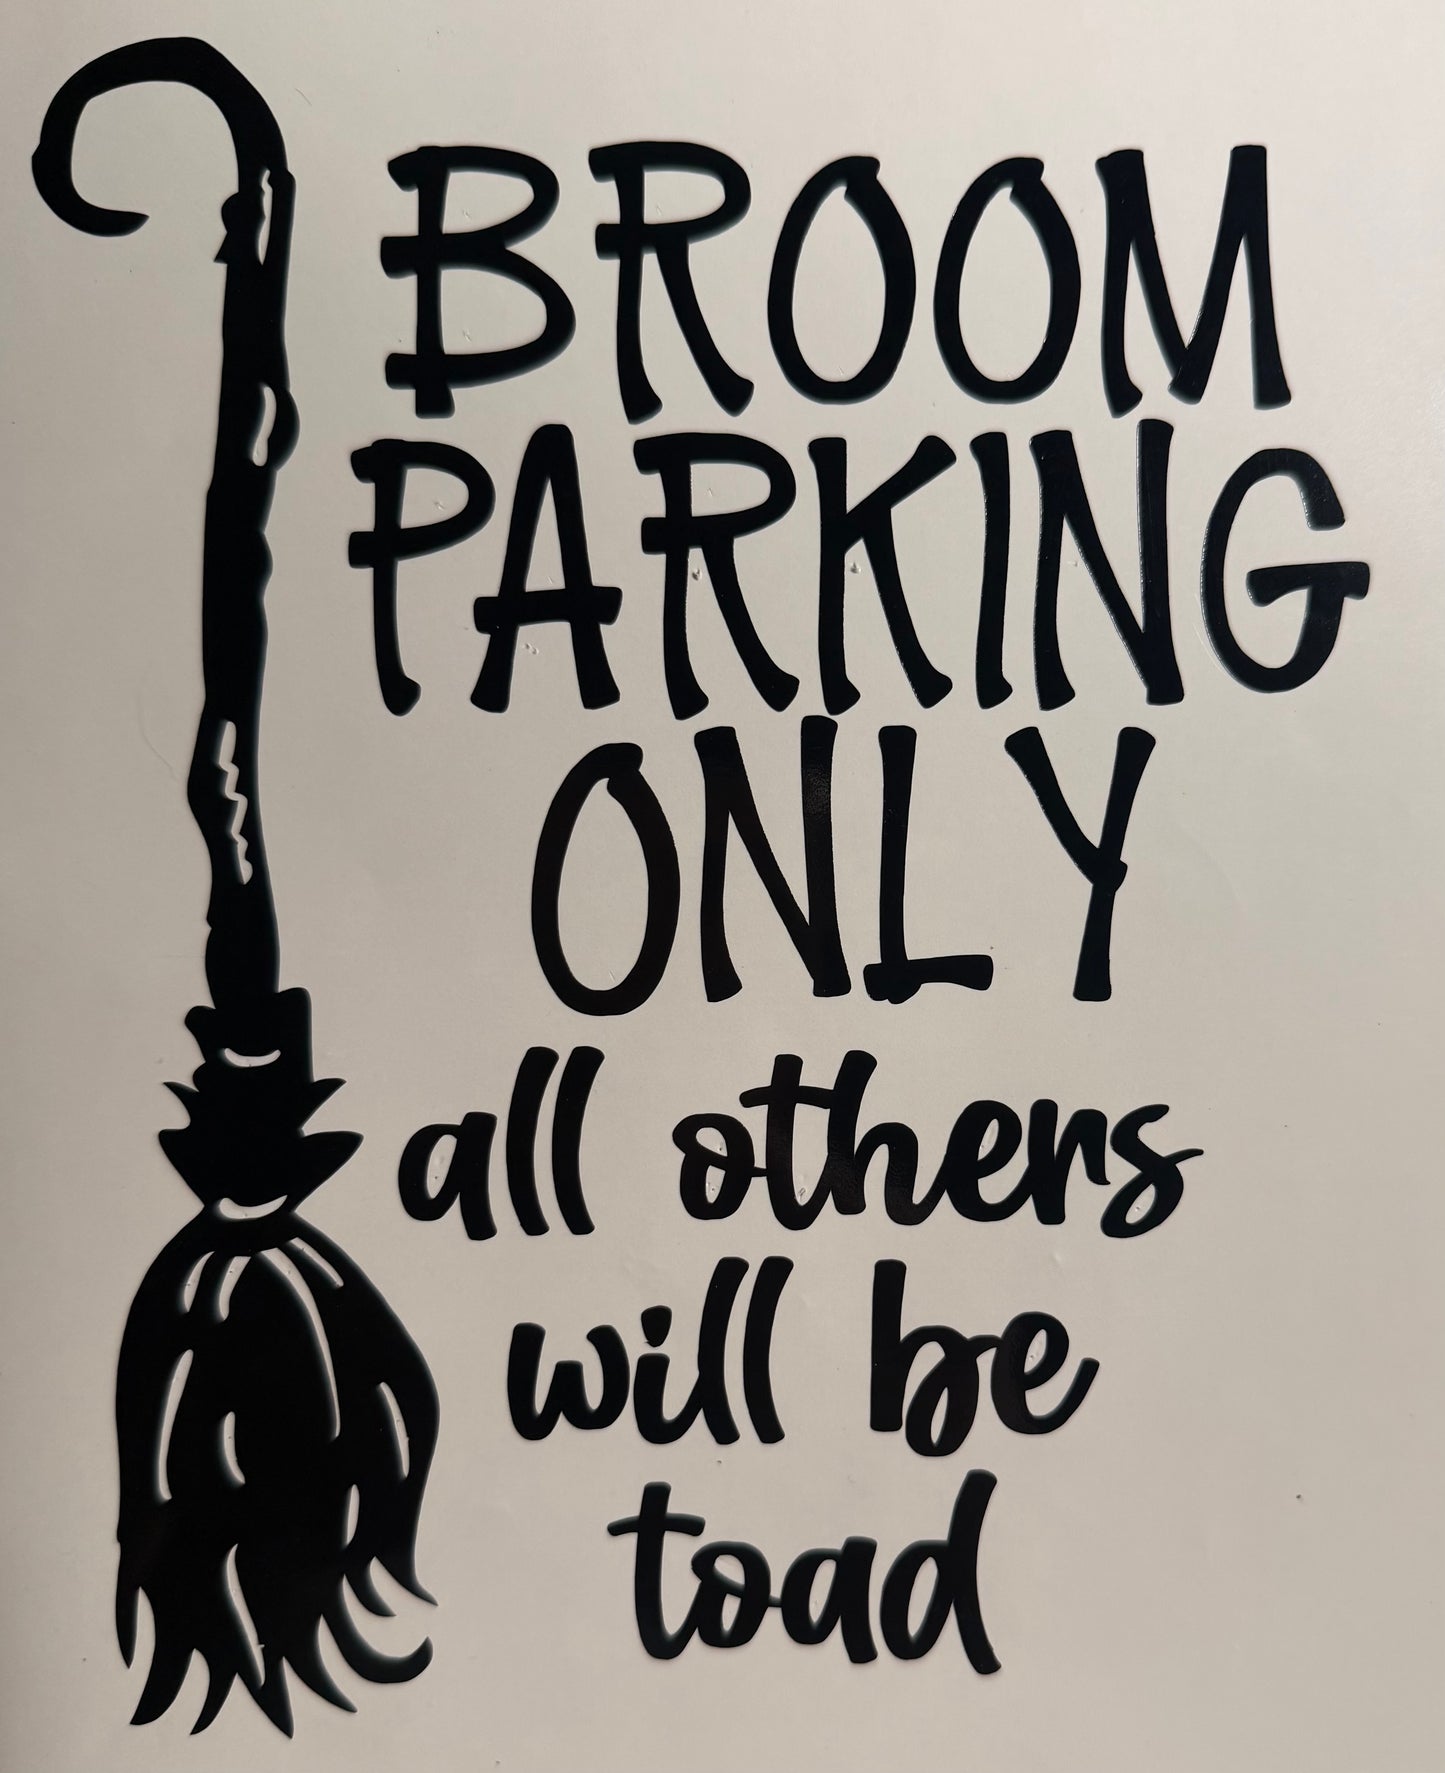 BROOM
PARKING
ONLY
all others
will be
toad